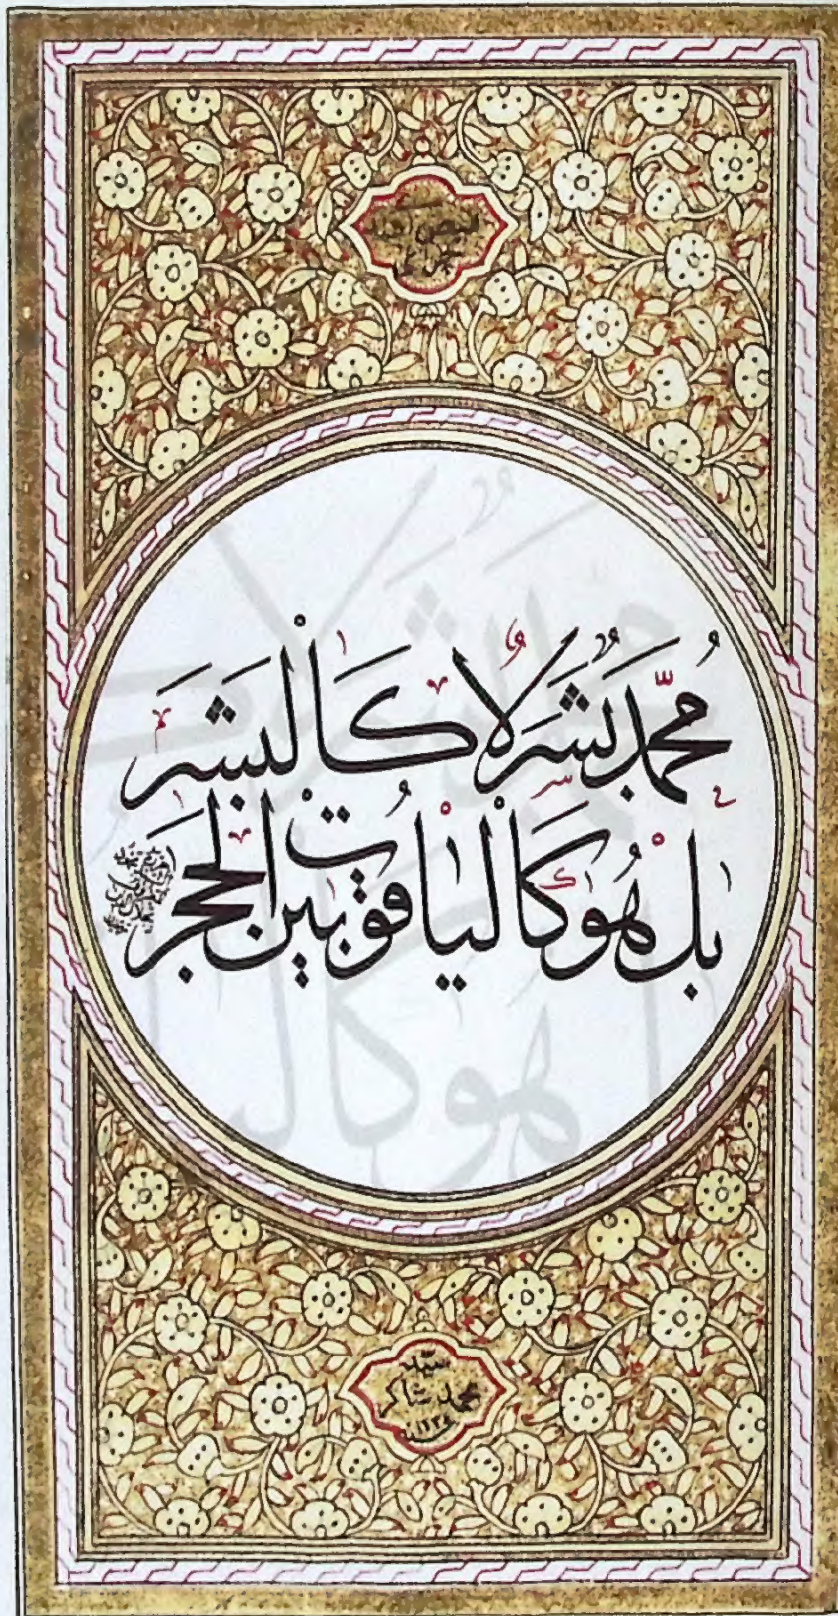 مُحَمَّدٌ بَشَرٌ لَا كَالْبَشَرِ
بَلْ هُوَ كَالْيَاقُوتِ بَيْنَ الْحَجَرِ
سيد
محمد شاكر